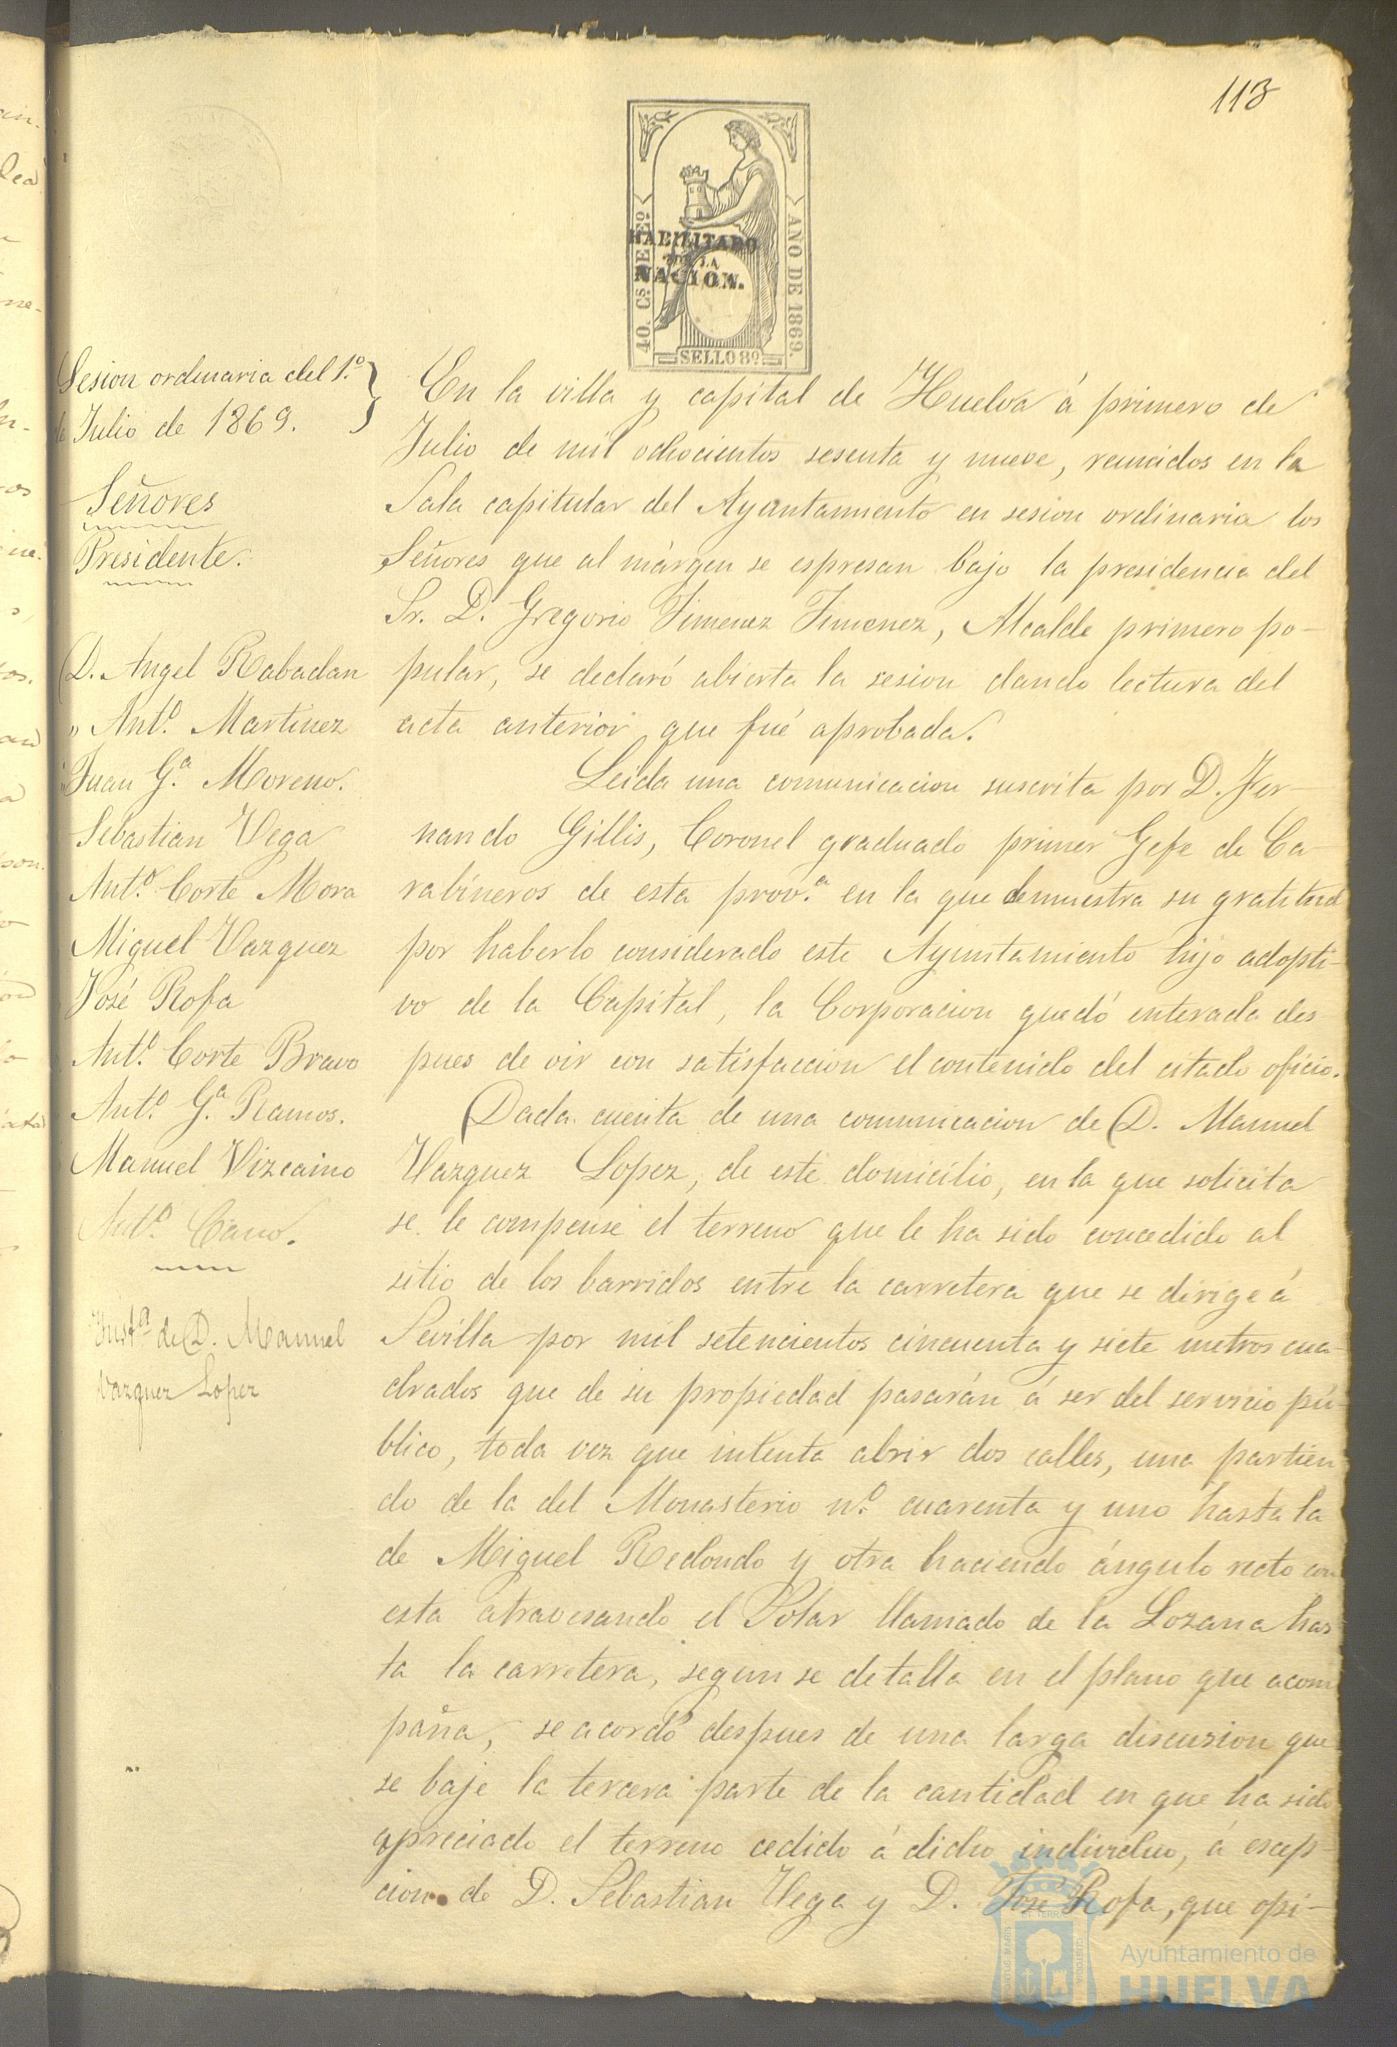 113
40. Cs. DE Eº
AÑO DE 1869.
HABILITADO
POR LA
NACION.
SELLO 8º
Sesion ordinaria del 1.º
de Julio de 1869.
Señores
Presidente.
D. Angel Rabadan
" Ant.º Martinez
" Juan G.ª Moreno.
Sebastian Vega
Ant.º Corte Mora
Miguel Vazquez
José Rofa
Ant.º Corte Bravo
Ant.º G.ª Ramos.
Manuel Vizcaino
Ant.º Cano.
Inst.ª de D. Manuel
Vazquez Lopez
En la villa y capital de Huelva á primero de
Julio de mil ochocientos sesenta y nueve, reunidos en la
Sala capitular del Ayuntamiento en sesion ordinaria los
Señores que al márgen se espresan bajo la presidencia del
Sr. D. Gregorio Jimenez Jimenez, Alcalde primero po-
pular, se declaró abierta la sesion dando lectura del
acta anterior que fué aprobada.
Leida una comunicacion suscrita por D. Fer-
nando Gillis, Coronel graduado primer Gefe de Ca-
rabineros de esta prov.ª en la que demuestra su gratitud
por haberlo considerado este Ayuntamiento hijo adopti-
vo de la Capital, la Corporacion quedó enterada des-
pues de oir con satisfaccion el contenido del citado oficio.
Dada cuenta de una comunicacion de D. Manuel
Vazquez Lopez, de este domicilio, en la que solicita
se le compense el terreno que le ha sido concedido al
sitio de los barridos entre la carretera que se dirige á
Sevilla por mil setecientos cincuenta y siete metros cua-
drados que de su propiedad pasarán á ser del servicio pú-
blico, toda vez que intenta abrir dos calles, una partien
do de la del Monasterio n.º cuarenta y uno hasta la
de Miguel Redondo y otra haciendo ángulo recto con
esta atravesando el Solar llamado de la Lozana has
ta la carretera, segun se detalla en el plano que acom
paña, se acordó despues de una larga discusion que
se baje la tercera parte de la cantidad en que ha sido
apreciado el terreno cedido á dicho individuo, á escep-
cion de D. Sebastian Vega y D. José Rofa, que opi-
Ayuntamiento de
HUELVA